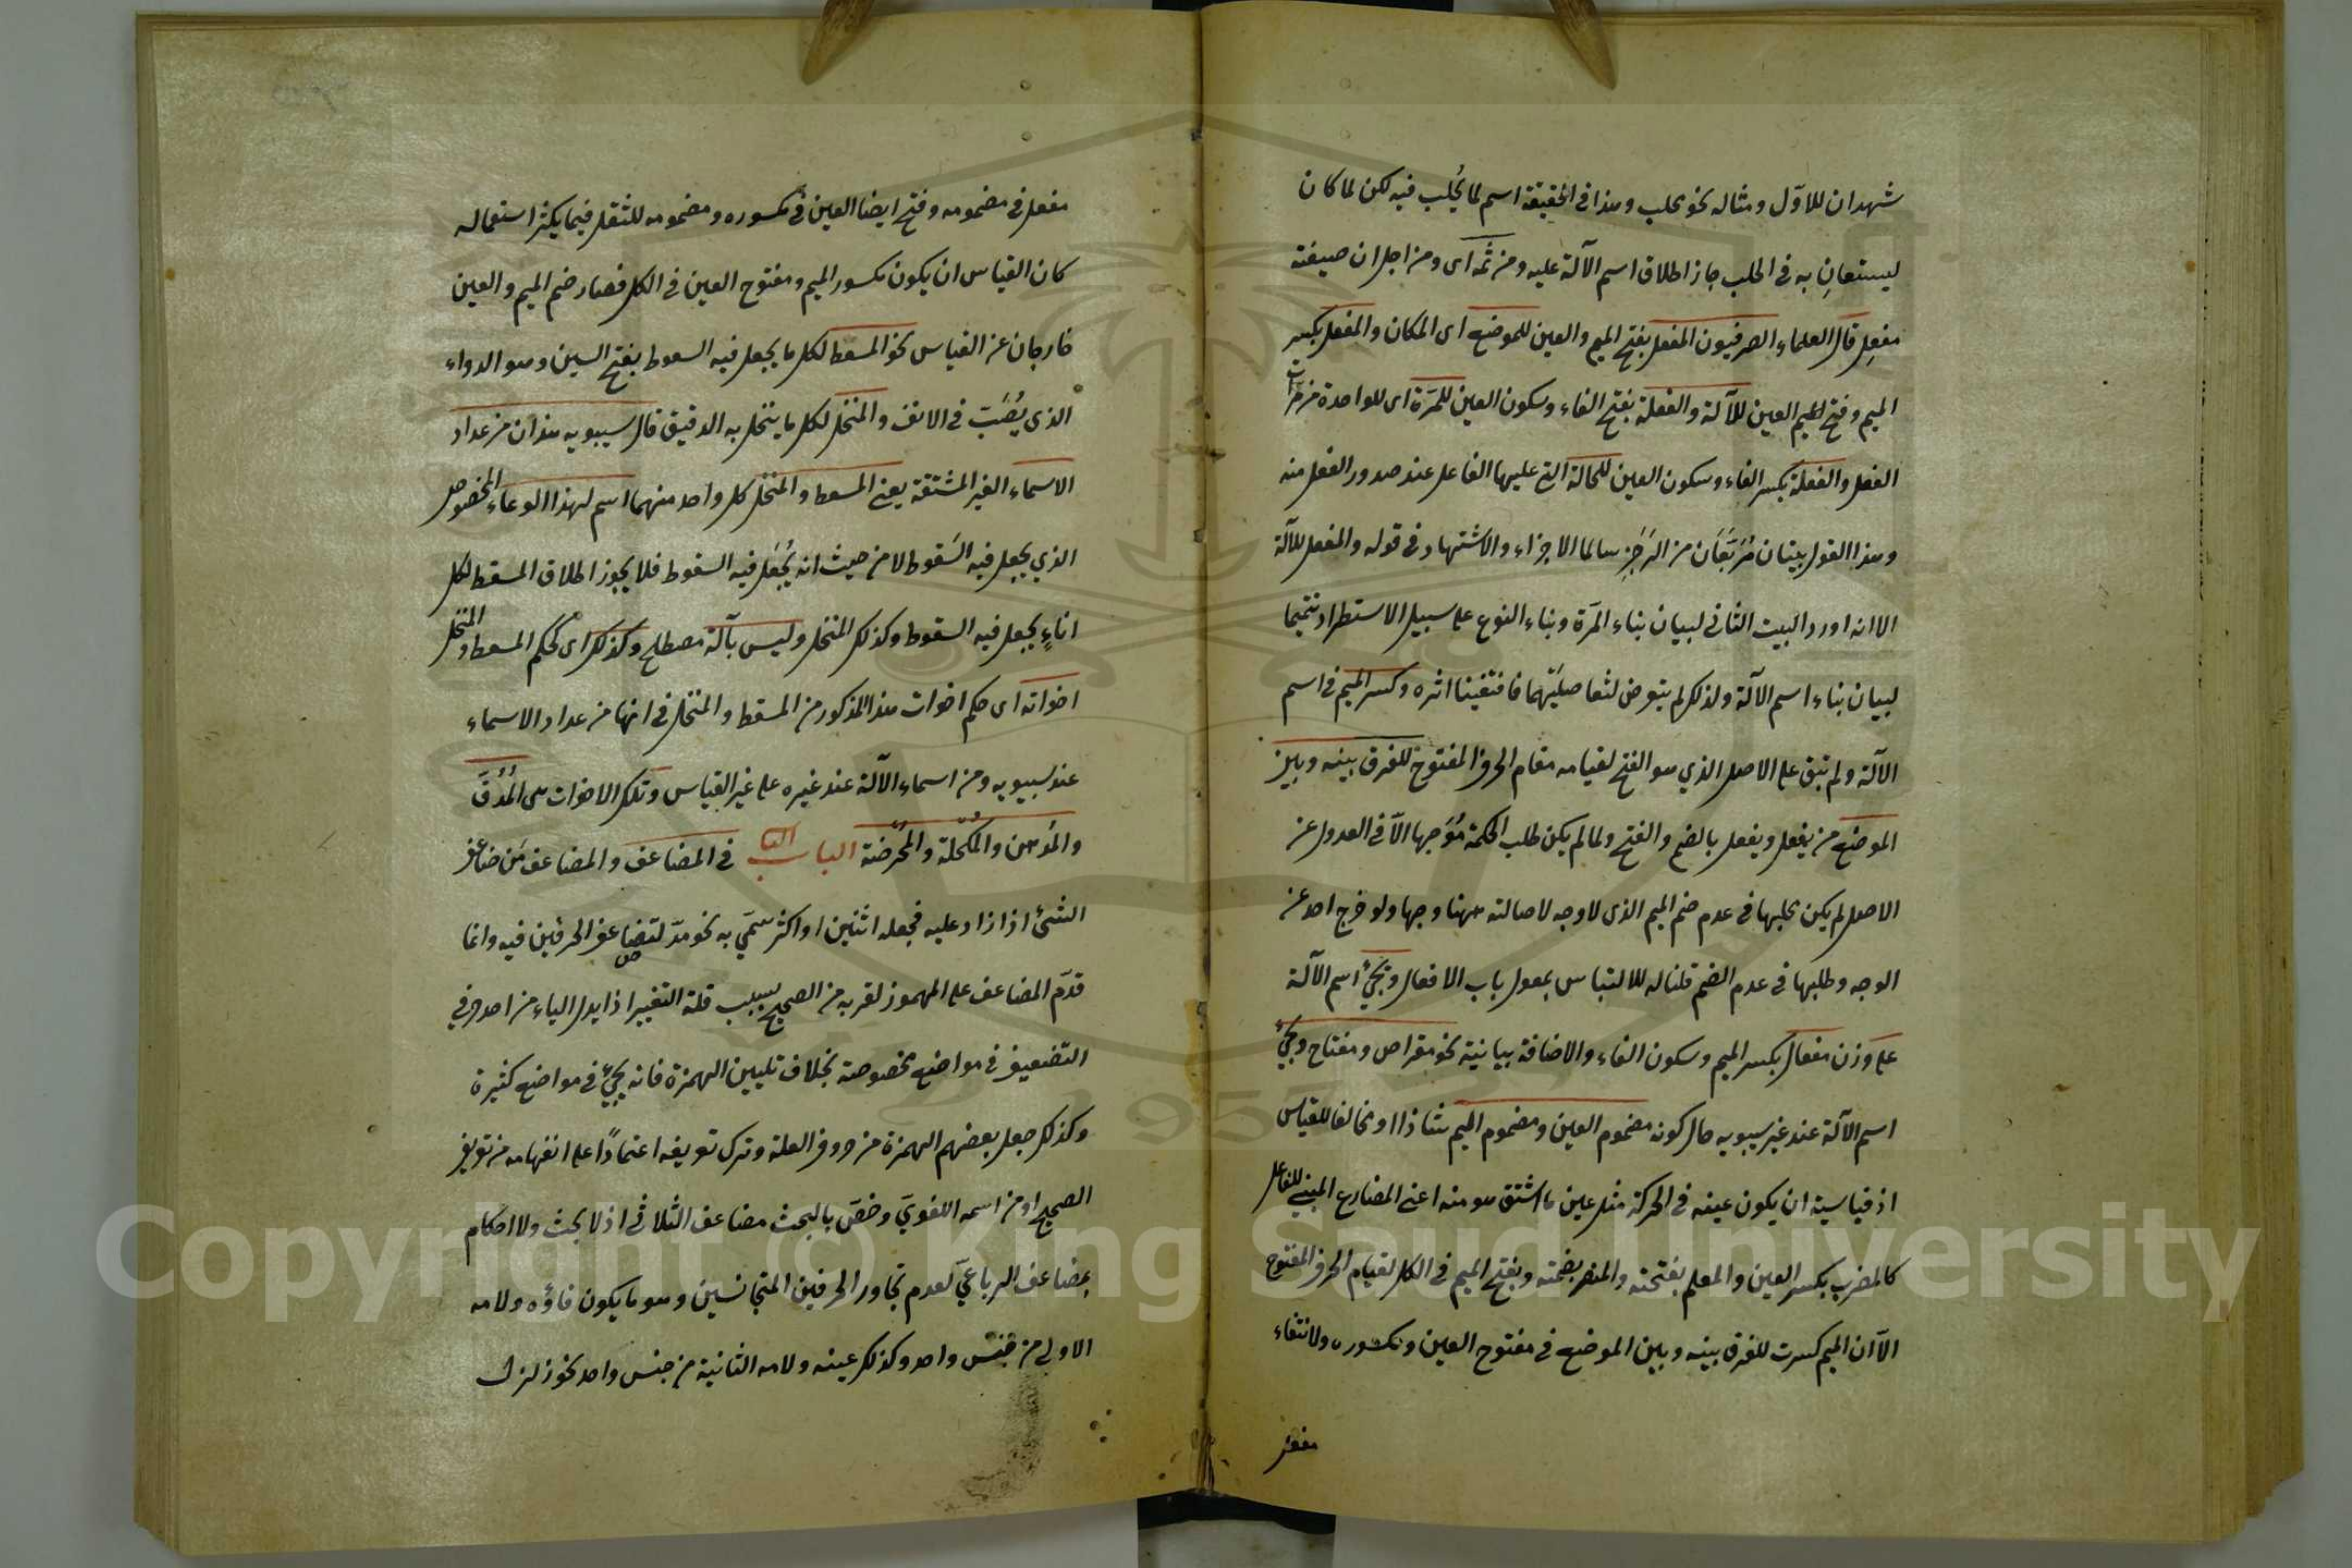 شهدان للاوّل ومثاله نحو محلب وهذا في الحقيقة اسم لما يُحلب فيه لكن لما كان
ليستعان به في الحلب جاز اطلاق اسم الآلة عليه ومن ثَمّه اى ومن اجل ان صيغته
مفعِل قال العلماء الصرفيون المفعل بفتح الميم والعين للموضع اى المكان والمفعل بكسر
الميم وفتح العين للآلة والفعلة بفتح الفاء وسكون العين للمَرّة اى للواحدة من مرّات
الفعل والفعلة بكسر الفاء وسكون العين للحالة التي عليها الفاعل عند صدور الفعل منه
وهذا القول بيتان مُرَبَّعَان من الرَجَزِ سالما الاجزاء والاشتهاد في قوله والمفعل للآلة
الا انه اورد البيت الثاني لبيان بناء المَرّة وبناء النوع على سبيل الاستطراد تتميما
لبيان بناء اسم الآلة ولذلك لم يتعرض لتفاصيلهما فاقتفينا اثره وكسر الميم في اسم
الآلة ولم تبق على الاصل الذي هو الفتح لقيامه مقام الحرف المفتوح للفرق بينه وبين
الموضع من يفعل ويفعل بالضم والفتح ولما لم يكن طلب الحكمة مُوَجِّها الّا في العدول عن
الاصل لم يكن طلبها في عدم ضم الميم الذى لا وجه لاصالته ههنا وجها ولو خرج احد عن
الوجه وطلبها في عدم الضم قلنا له للالتباس بمفعول باب الافعال ويجئ اسم الآلة
على وزن مفعال بكسر الميم وسكون الفاء والاضافة بيانية نحو مقراض ومفتاح ويجئ
اسم الآلة عند غير سيبويه حال كونه مضموم العين ومضموم الميم شاذا او مخالفا للقياس
اذ قياسية ان يكون عينه في الحركة مثل عين ما اشتق هو منه اعنى المضارع المبنى للفاعل
كالمضرب بكسر العين والمعلم بفتحته والمنصر بضمته وبفتح الميم في الكل لقيام الحرف المفتوح
الّا ان الميم كسرت للفرق بينه وبين الموضع في مفتوح العين ومكسوره ولانتفاء
مفعل
مفعل في مضمومه وفتح ايضا العين في مكسوره ومضمومه للثقل فيما يكثر استعماله
كان القياس ان يكون مكسور الميم ومفتوح العين في الكل فصار ضم الميم والعين
خارجان عن القياس نحو المسعط لكل ما يجعل فيه السعوط بفتح السين وهو الدواء
الذى يُصَبّ في الانف والمنخل لكل ما ينخل به الدقيق قال سيبويه هذان من عداد
الاسماء الغير المشتقة يعنى المسعط والمنخل كل واحد منهما اسم لهذا الوعاء المخصوص
الذي يجعل فيه السَقوط لا من حيث انه يُجعَل فيه السقوط فلا يجوز اطلاق المسقط لكل
اناءٍ يجعل فيه السقوط وكذلك المنخل وليس بآلة مصطلح وكذلك اى كحكم المسعط والمنخل
اخواته اى حكم اخوات هذا المذكور من المسقط والمنخل في انها من عداد الاسماء
عند سيبويه ومن اسماء الآلة عند غيره على غير القياس وتلك الاخوات هى المُدُقّ
والمُدهن والمُكحلة والمُحرُضة الباب الثا في المضاعف والمضاعف من ضاعف
الشئ اذا زاد عليه فجعله اثنين او اكثر سمّي به نحو مدّ لتضاعف الحرفين فيه وانما
قدّم المضاعف على المهموز لقربه من الصحيح بسبب قلة التغيير اذ ابدل الياء من احد حرفي
التضعيف في مواضع مخصوصة بخلاف تليين الهمزة فانه يجئ في مواضع كثيرة
وكذلك جعل بعضهم الهمزة من حروف العلة وترك تعريفه اعتمادًا على انفهامه من تعريف
الصحيح او من اسمه اللغويّ وخصّ بالبحث مضاعف الثلاثي اذ لا بحث ولا احكام
بمضاعف الرباعيّ لعدم تجاور الحرفين المتجانسين وهو ما يكون فاؤه ولامه
الاولى من جنس واحد وكذلك عينه ولامه الثانية من جنس واحد نحو زلزل
Copyright © King Saud University
1957